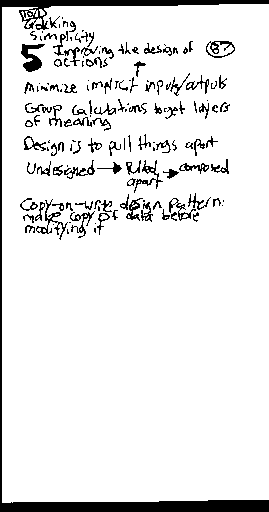 Grokking
Simplicity
5 Improving the design of 87
actions
minimize implicit inputs/outputs
Group calculations to get layers
of meaning
Design is to pull things apart
Undesigned → Pulled → composed
apart
Copy-on-write design pattern:
make copy of data before
modifying it